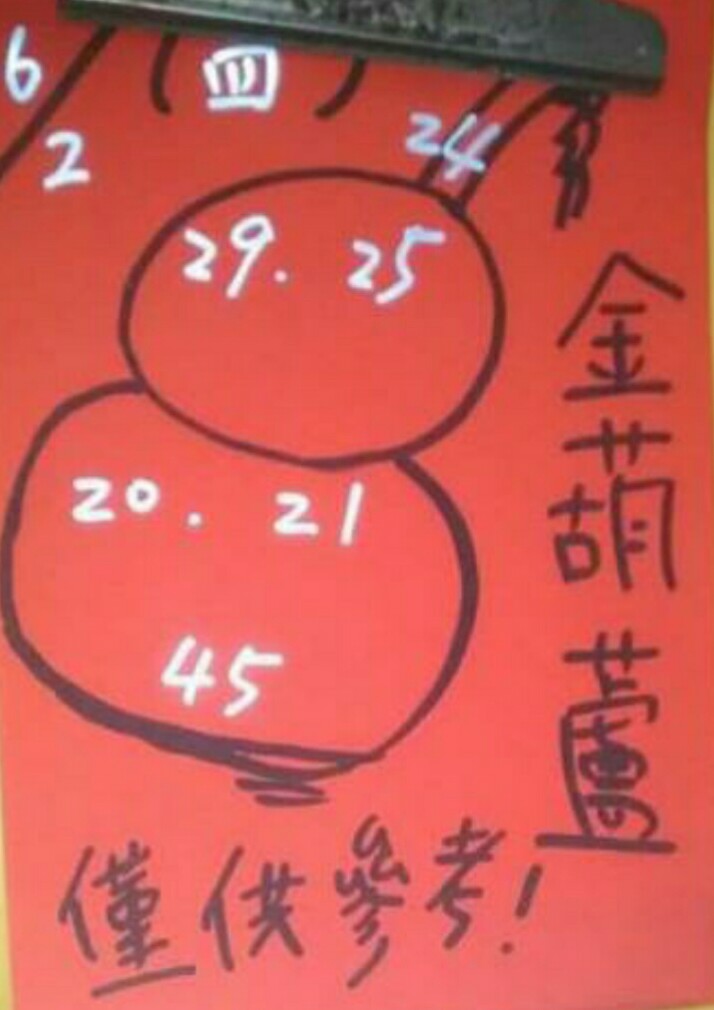 6/2 (四)
24
29. 25
20. 21
45
金葫蘆
僅供參考!